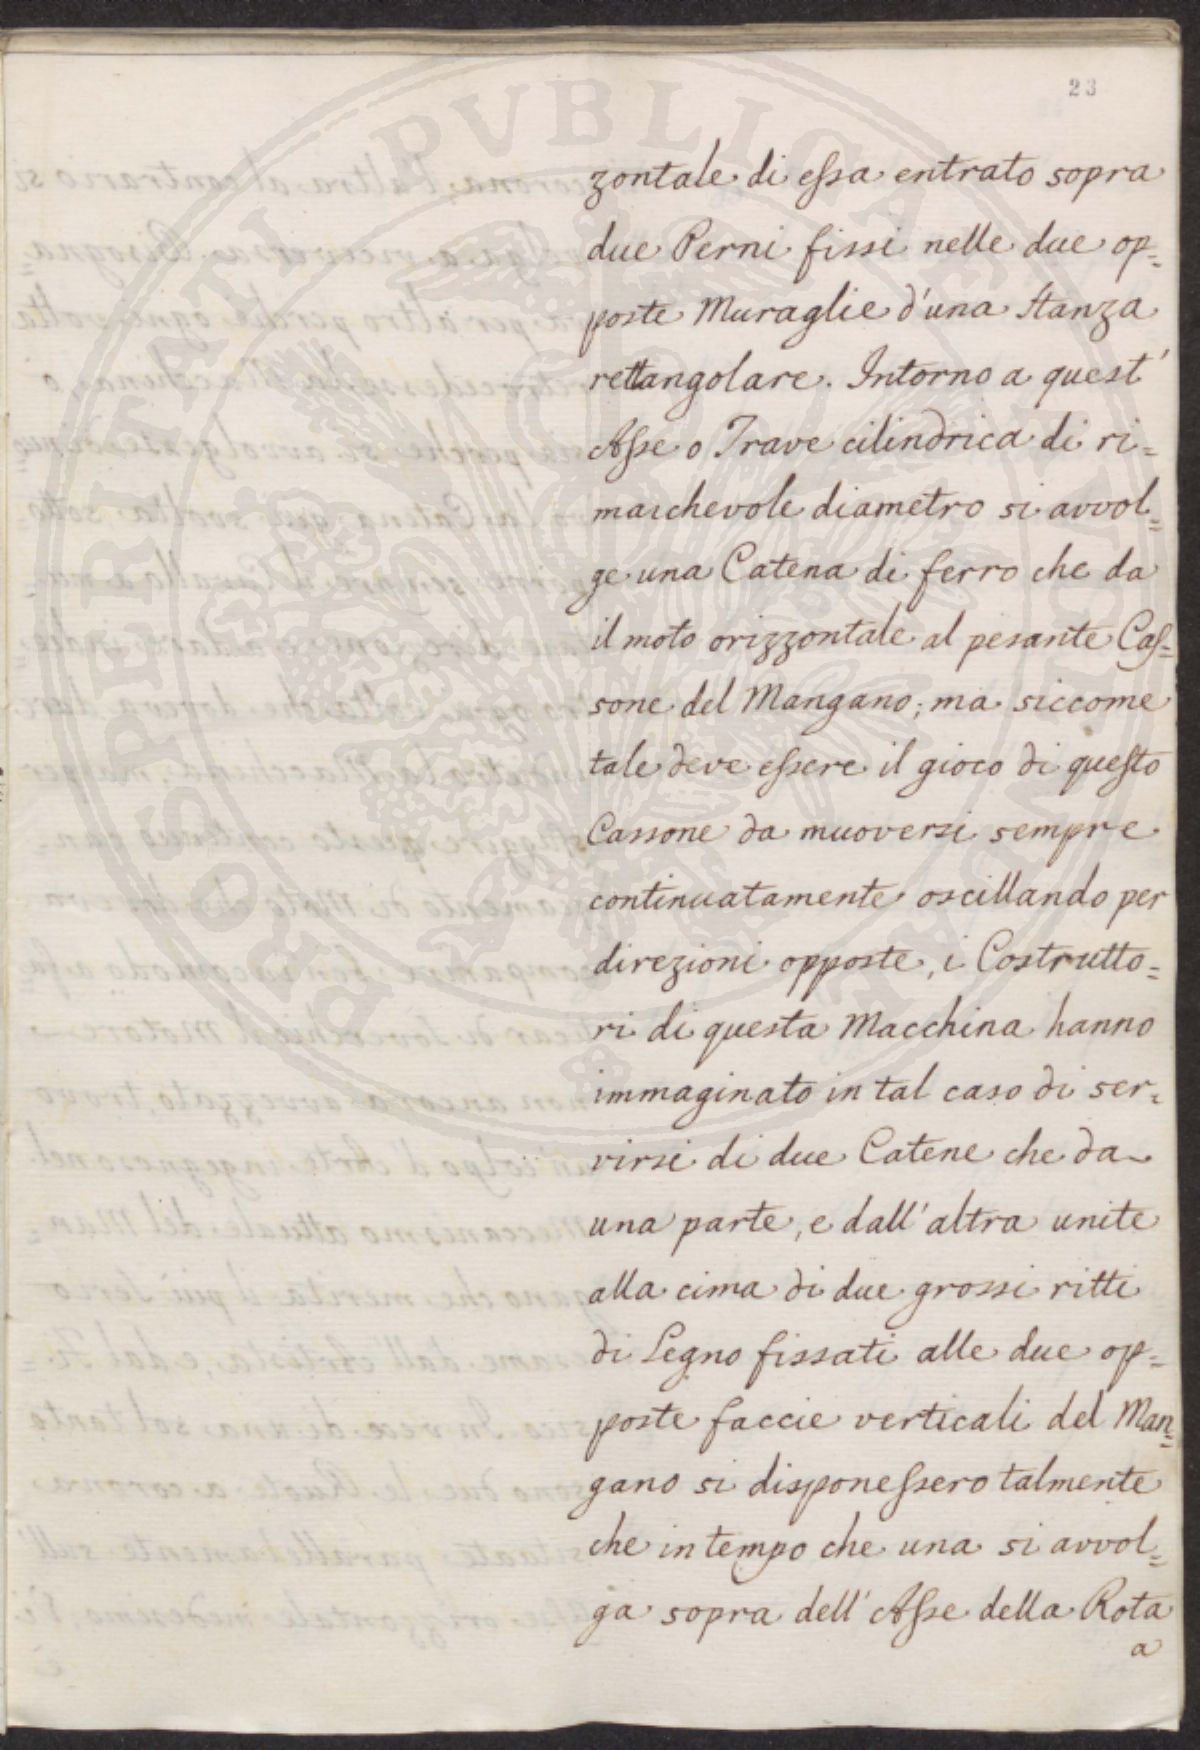 23
zontale di essa entrato sopra
due Perni fissi nelle due op=
poste Muraglie d'una stanza
rettangolare. Intorno a quest'
Asse o Trave cilindrica di ri=
marchevole diametro si avvol=
ge una Catena di ferro che da
il moto orizzontale al pesante Cas=
sone del Mangano; ma siccome
tale deve essere il gioco di questo
Cassone da muoversi sempre
continuatamente oscillando per
direzioni opposte, i Costrutto=
ri di questa Macchina hanno
immaginato in tal caso di ser=
virsi di due Catene che da
una parte, e dall'altra unite
alla cima di due grossi ritti
di Legno fissati alle due op=
poste faccie verticali del Man=
gano si disponessero talmente
che in tempo che una si avvol=
ga sopra dell'Asse della Rota
a
PROSPERITATI PVBLICAE AVGENDAE